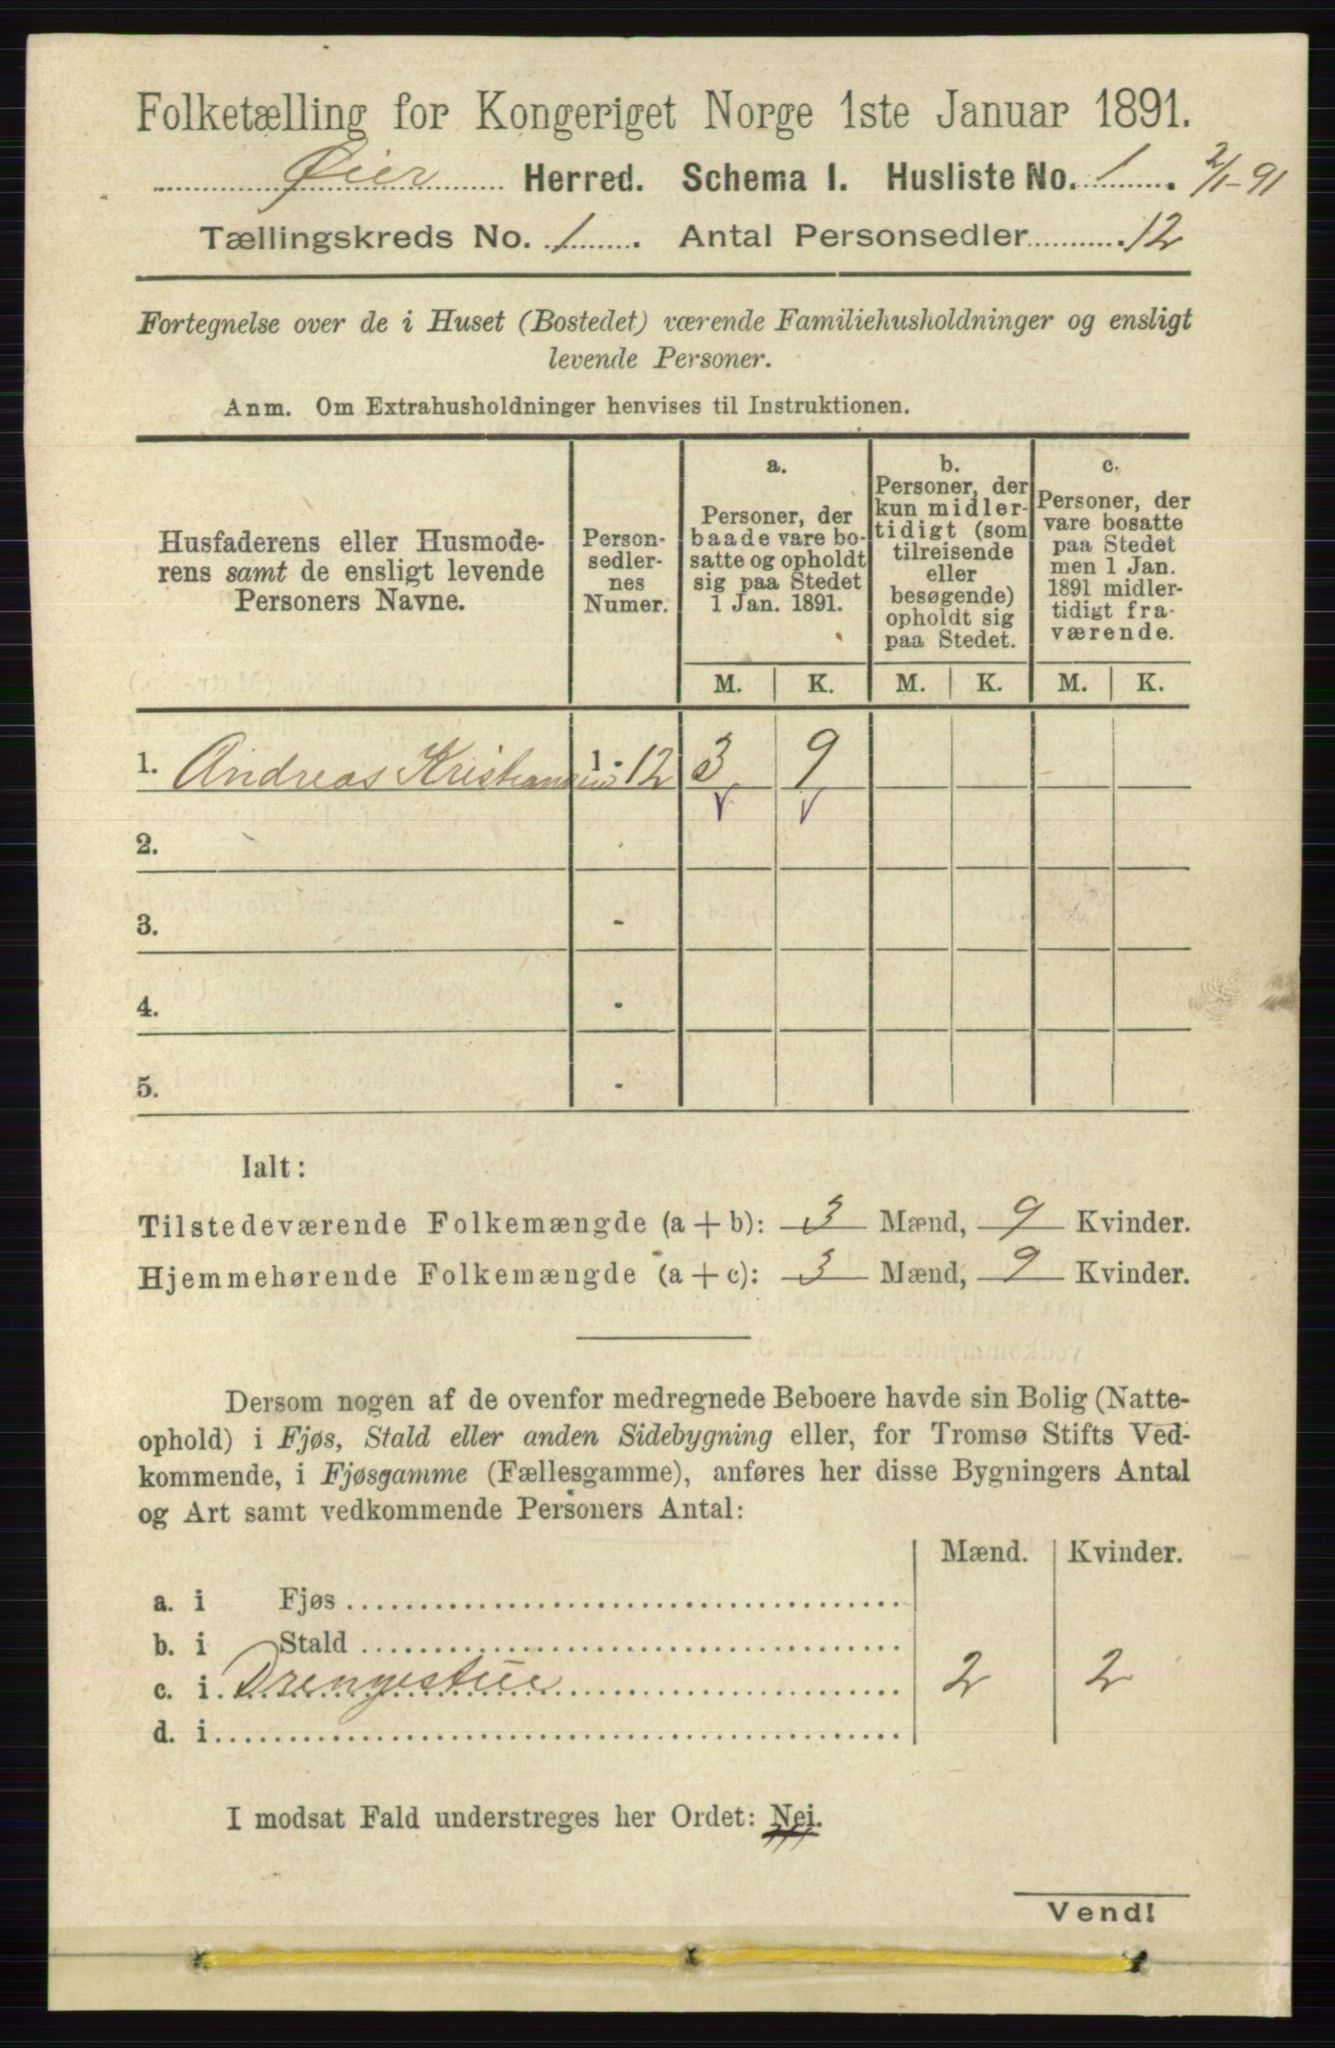 Folketælling for Kongeriget Norge 1ste Januar 1891.
Øier Herred. Schema I. Husliste No. 1. 2/1-91
Tællingskreds No. 1. Antal Personsedler 12
Fortegnelse over de i Huset (Bostedet) værende Familiehusholdninger og ensligt
levende Personer.
Anm. Om Extrahusholdninger henvises til Instruktionen.
Husfaderens eller Husmode-
rens samt de ensligt levende
Personers Navne.
Person-
sedler-
nes
Numer.
a.
Personer, der
baade vare bo-
satte og opholdt
sig paa Stedet
1 Jan. 1891.
b.
Personer, der
kun midler-
tidigt (som
tilreisende
eller
besøgende)
opholdt sig
paa Stedet.
c.
Personer, der
vare bosatte
paa Stedet
men 1 Jan.
1891 midler-
tidigt fra-
værende.
M. K. M. K. M. K.
1. Andreas Kristiansen 1 - 12 3 9
2.
3. -
4. -
5. -
Ialt:
Tilstedeværende Folkemængde (a + b): 3 Mænd, 9 Kvinder.
Hjemmehørende Folkemængde (a + c): 3 Mænd, 9 Kvinder.
Dersom nogen af de ovenfor medregnede Beboere havde sin Bolig (Natte-
ophold) i Fjøs, Stald eller anden Sidebygning eller, for Tromsø Stifts Ved-
kommende, i Fjøsgamme (Fællesgamme), anføres her disse Bygningers Antal
og Art samt vedkommende Personers Antal:
Mænd. Kvinder.
a. i Fjøs
b. i Stald
c. i Drengestue 2 2
d. i
I modsat Fald understreges her Ordet: Nei.
Vend!